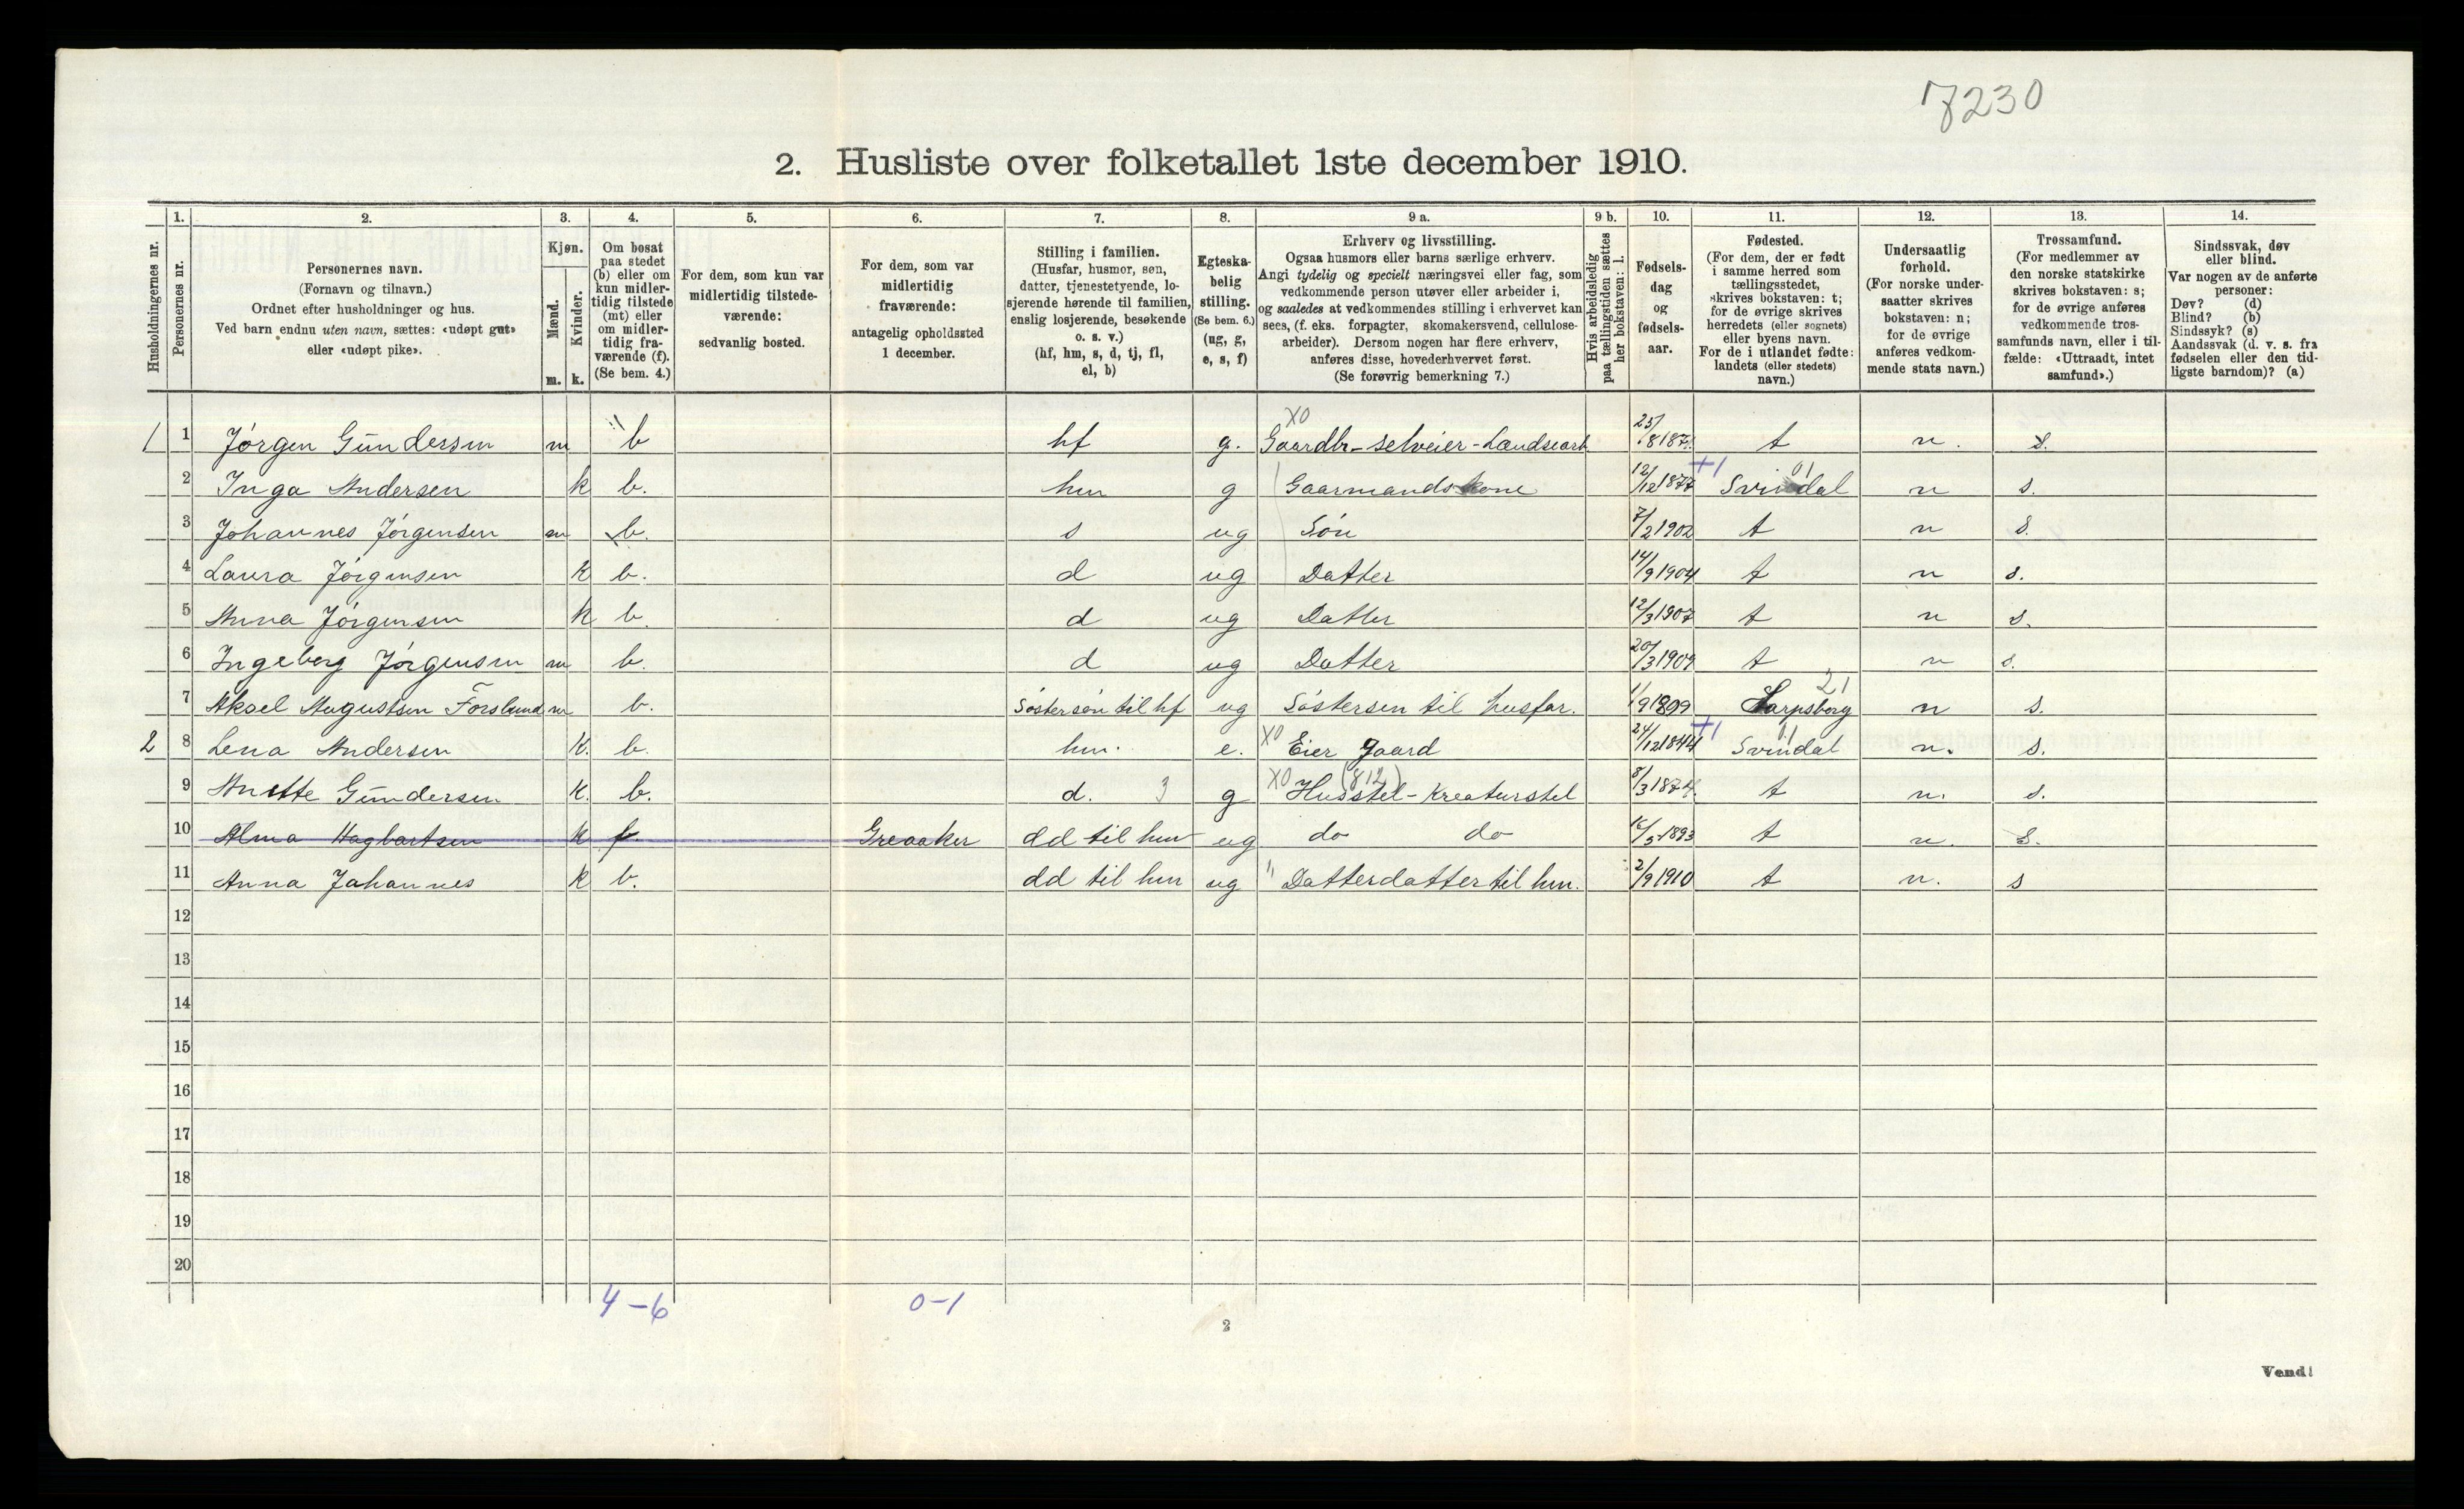 7230
2. Husliste over folketallet 1ste december 1910.
Husholdningernes nr.
1.
Personernes nr.
2.
Personernes navn.
(Fornavn og tilnavn.)
Ordnet efter husholdninger og hus.
Ved barn endnu uten navn, sættes: «udøpt gut»
eller «udøpt pike».
3.
Kjøn.
Mænd.
Kvinder.
m. k.
4.
Om bosat
paa stedet
(b) eller om
kun midler-
tidig tilstede
(mt) eller
om midler-
tidig fra-
værende (f).
(Se bem. 4.)
5.
For dem, som kun var
midlertidig tilstede-
værende:
sedvanlig bosted.
6.
For dem, som var
midlertidig
fraværende:
antagelig opholdssted
1 december.
7.
Stilling i familien.
(Husfar, husmor, søn,
datter, tjenestetyende, lo-
sjerende hørende til familien,
enslig losjerende, besøkende
o. s. v.)
(hf, hm, s, d, tj, fl,
el, b)
8.
Egteska-
belig
stilling.
(Se bem. 6.)
(ug, g,
e, s, f)
9 a.
Erhverv og livsstilling.
Ogsaa husmors eller barns særlige erhverv.
Angi tydelig og specielt næringsvei eller fag, som
vedkommende person utøver eller arbeider i,
og saaledes at vedkommendes stilling i erhvervet kan
sees, (f. eks. forpagter, skomakersvend, cellulose-
arbeider). Dersom nogen har flere erhverv,
anføres disse, hovederhvervet først.
(Se forøvrig bemerkning 7.)
9 b.
Hvis arbeidsledig
paa tællingstiden sættes
her bokstaven: l.
10.
Fødsels-
dag
og
fødsels-
aar.
11.
Fødested.
(For dem, der er født
i samme herred som
tællingsstedet,
skrives bokstaven: t;
for de øvrige skrives
herredets (eller sognets)
eller byens navn.
For de i utlandet fødte:
landets (eller stedets)
navn.)
12.
Undersaatlig
forhold.
(For norske under-
saatter skrives
bokstaven: n;
for de øvrige
anføres vedkom-
mende stats navn.)
13.
Trossamfund.
(For medlemmer av
den norske statskirke
skrives bokstaven: s;
for de øvrige anføres
vedkommende tros-
samfunds navn, eller i til-
fælde: «Uttraadt, intet
samfund».)
14.
Sindssvak, døv
eller blind.
Var nogen av de anførte
personer:
Døv? (d)
Blind? (b)
Sindssyk? (s)
Aandssvak (d. v. s. fra
fødselen eller den tid-
ligste barndom)? (a)
1 1 Jørgen Gundersen m b hf g. X0 Gaardbr-selveier-Landsearb. 25/8 187 t n. s.
2 Inga Andersen k b. hm g Gaarmandskone 12/12 1877 +1 Svindal 01 n s.
3 Johannes Jørgensen m b. s ug Søn 7/2 1902 t n s.
4 Laura Jørgensen k b. d ug Datter 14/9 1904 t n s.
5 Anna Jørgensen k b. d ug Datter 12/3 1907 t n s.
6 Ingeborg Jørgensen m b. d ug Datter 20/3 1909 t n s.
7 Aksel Augustsen Forslund m b. Søstersøn til hf ug Søstersen til husfar. 1/9 1899 Sarpsborg 21 n s.
2 8 Lena Andersen k. b. hm. e. X0 Eier Gaard 24/12 1844 +1 Svindal 01 n. s.
9 Anette Gundersen k. b. d. 3 g X0 Husstel-Kreaturstel (812) 8/3 1874. t n. s.
10 Alma Hagbartsen k f. Greaaker dd til hm ug do do 16/5 1893 t n. s.
11 Anna Johannes k b. dd til hm ug " Datterdatter til hm. 2/9 1910 t n. s
12
13
14
15
16
17
18
19
20
4-6 0-1
2
Vend!